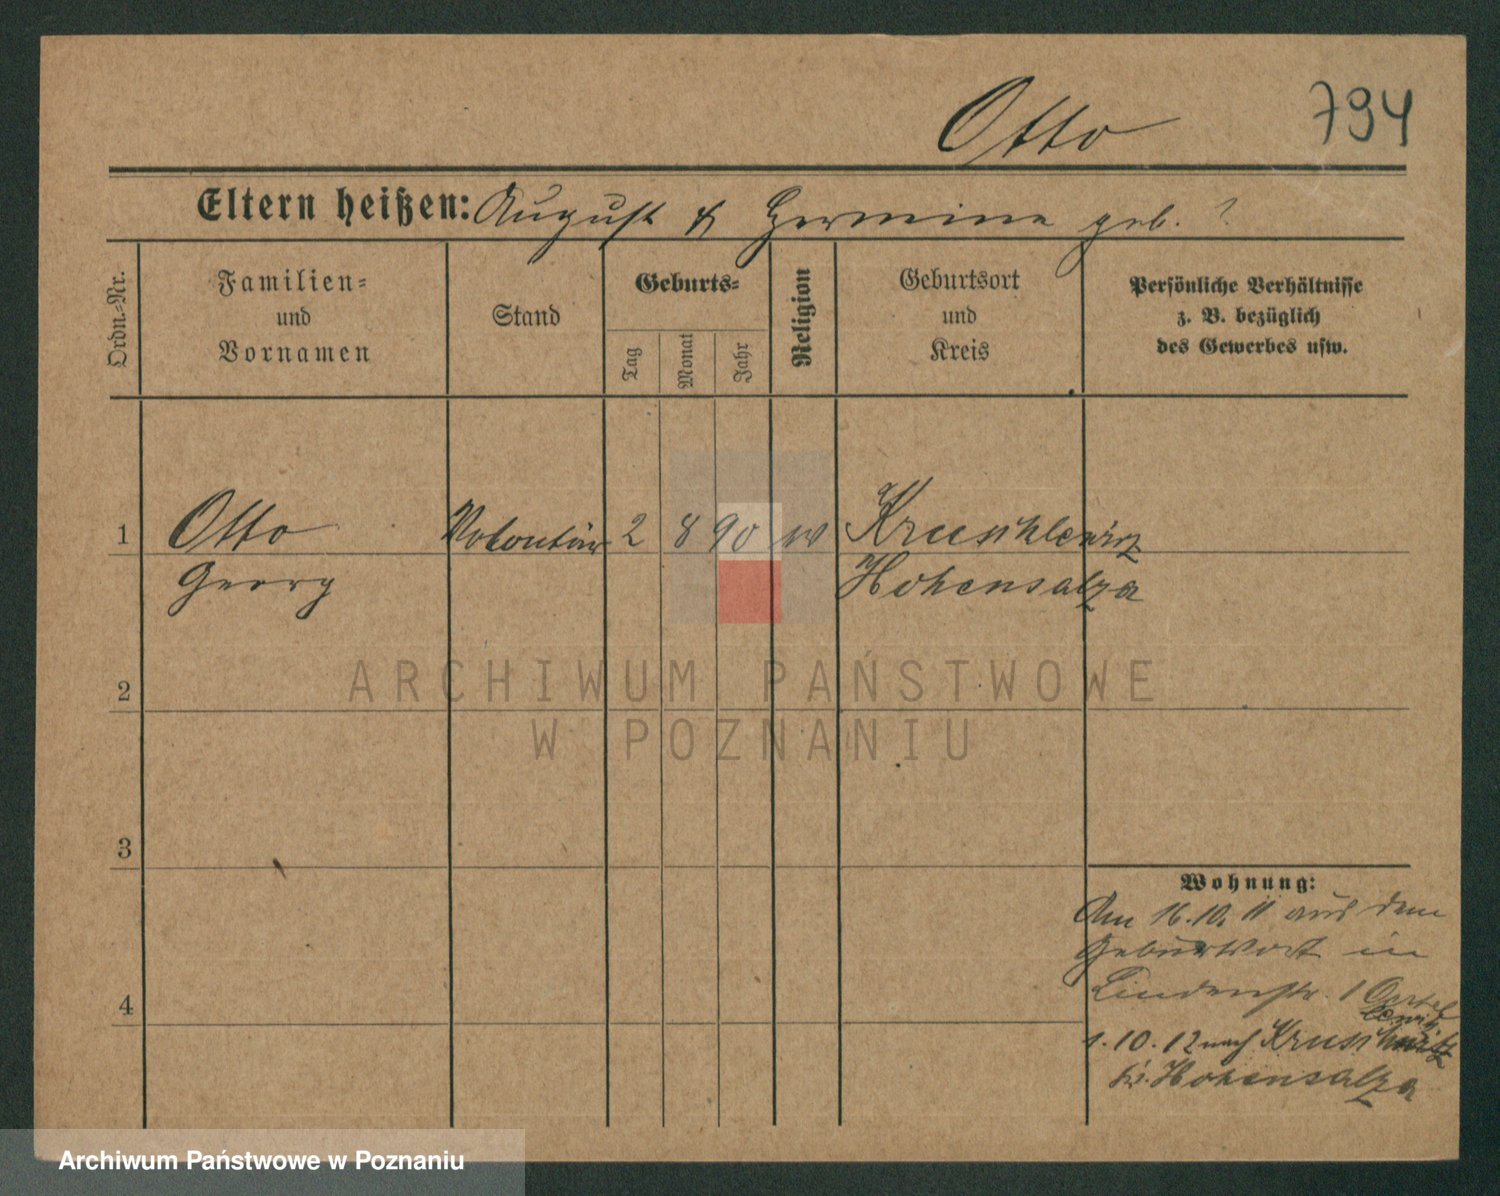 Otto 794
Eltern heißen: August & Hermine geb. ?
Ordn.-Nr.
Familien-
und
Vornamen
Stand
Geburts-
Tag
Monat
Jahr
Religion
Geburtsort
und
Kreis
Persönliche Verhältnisse
z. B. bezüglich
des Gewerbes usw.
1 Otto Volontär 2 8 90 Kruschlewitz
Georg Hohensalza
ARCHIWUM PAŃSTWOWE
W POZNANIU
2
3
4
Wohnung:
Am 16.10.11 aus dem
Geburtsort in
Lindenstr. 1
1.10.12 nach
Hohensalza
Archiwum Państwowe w Poznaniu